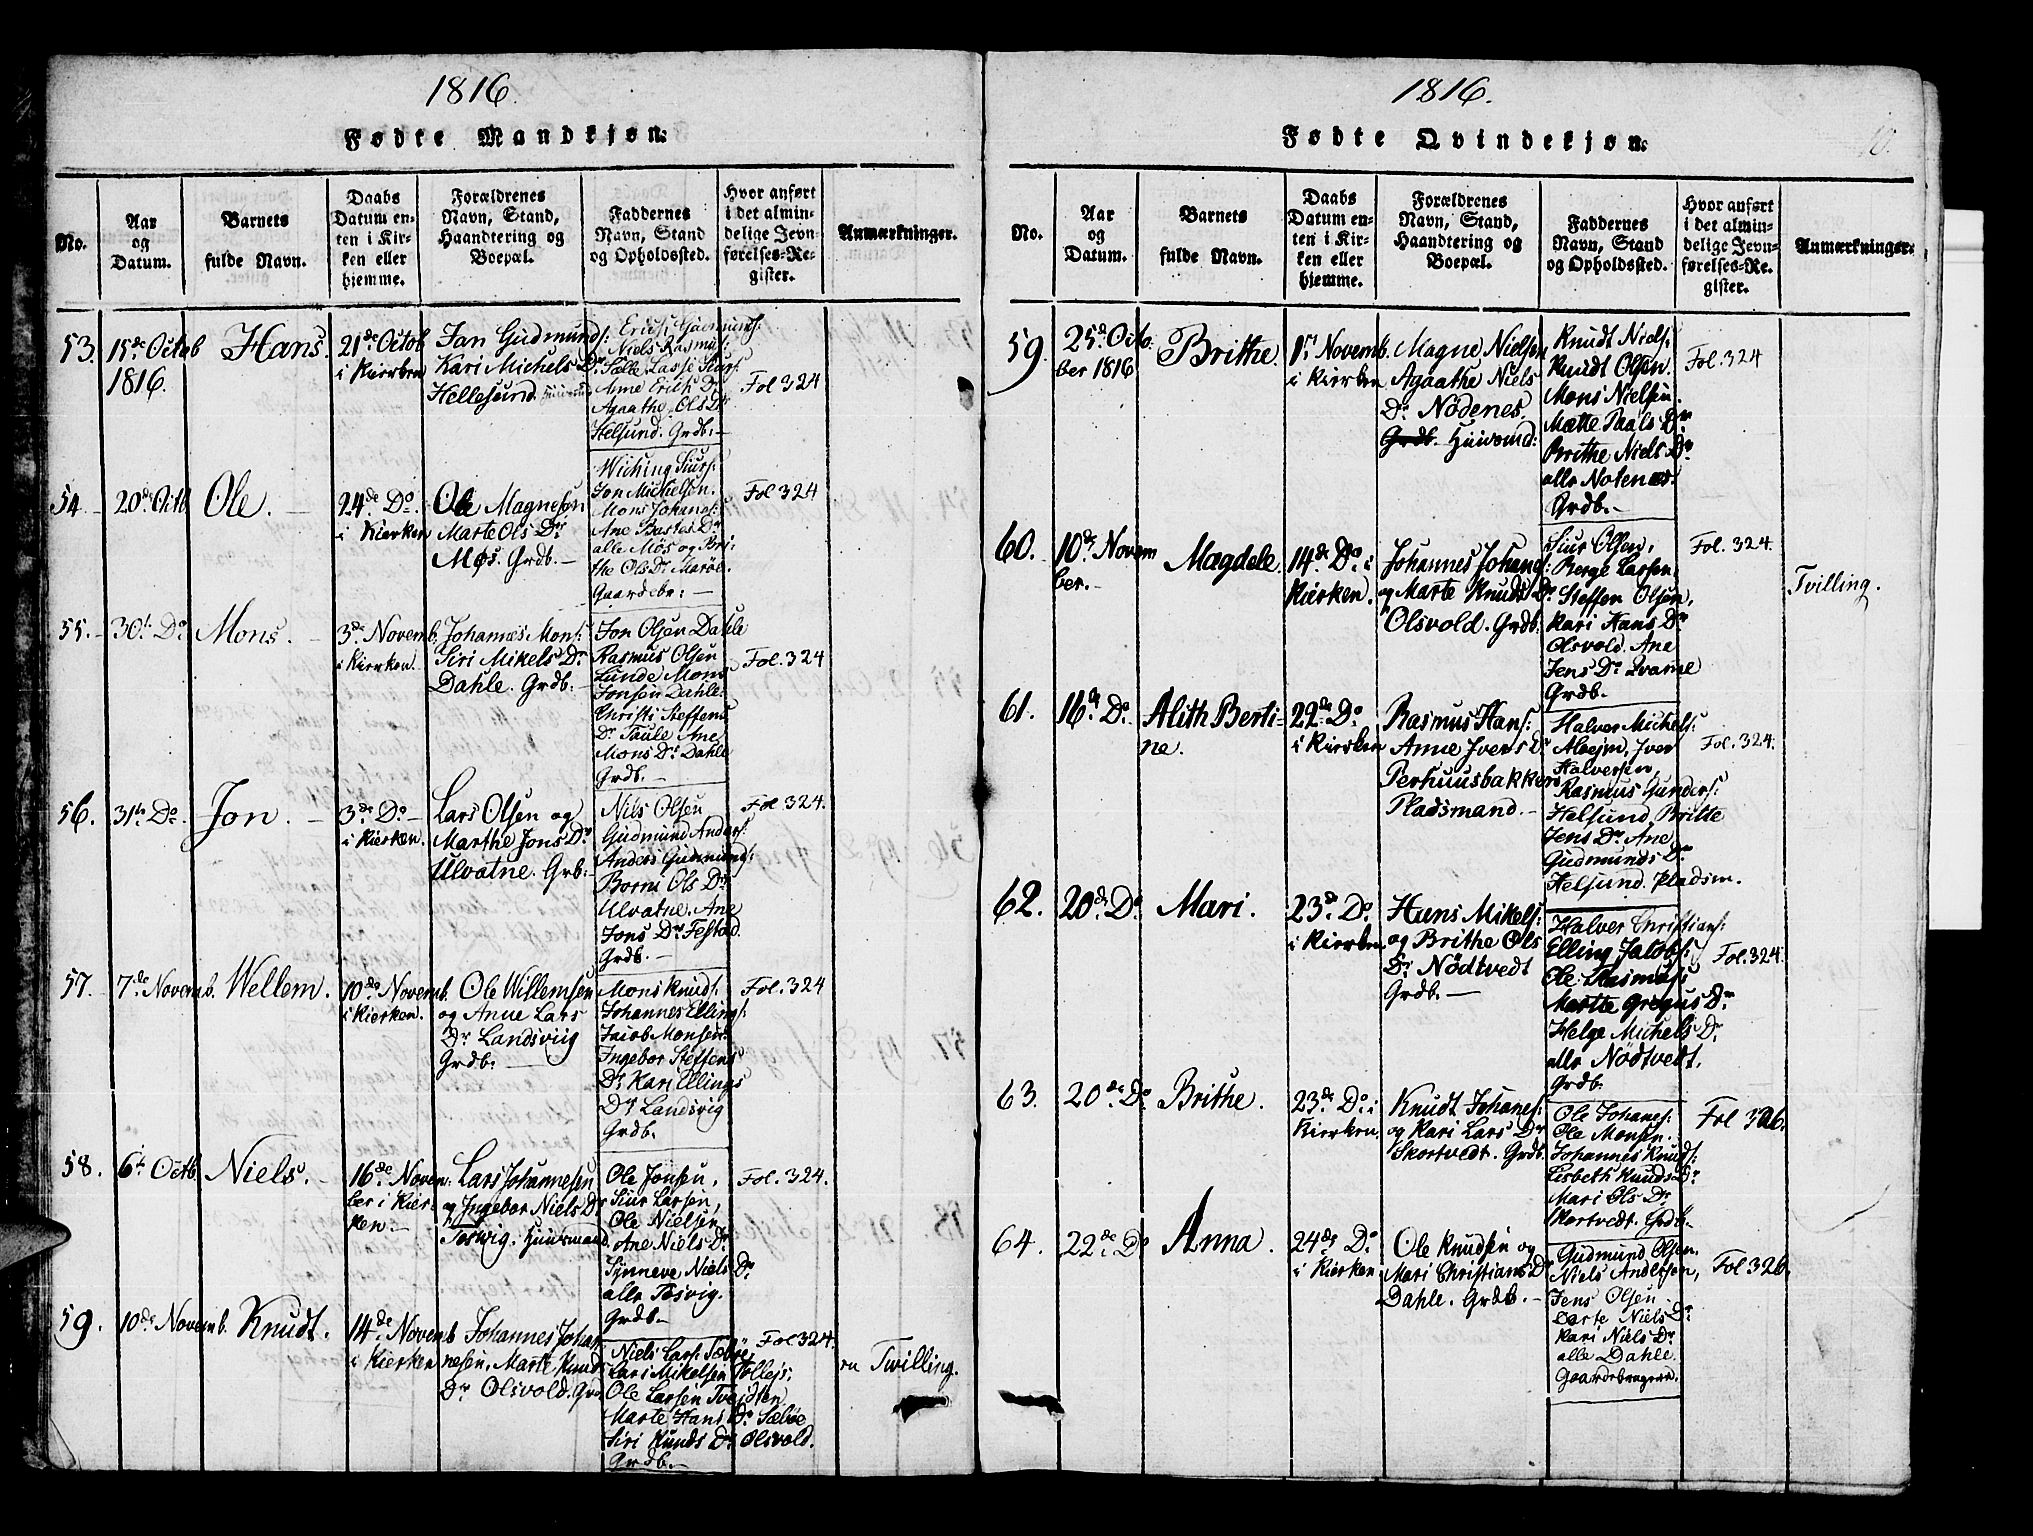 1816.
Fødte Mandkjøn:
No.
Aar
og
Datum.
Barnets
fulde Navn.
Daabs
Datum en-
ten i Kir-
ken eller
hjemme.
Forældrenes
Navn, Stand,
Haandtering og
Boepæl.
Faddernes
Navn, Stand
og Opholdssted.
Hvor anført
i det almin-
delige Jevn-
førelses-Re-
gister.
Anmærkninger.
53.
15de Octob
1816.
Hans.
21de Octob
i Kierken
Jan Gudmund:
Kari Michels Dr
Hellesund.
Niels Rasmus:
Anne Erics Dr
Agaathe Ols Dr
Helsund. Grdb: –
Fol 324
54. –
20de Octb
Ole. –
24de Do.
i Kierken
Ole Magnesøn
Marte Ols Dr
Møs. Grdb. –
Wiching Siurs:
Jon Michelsen.
Mons Johanes:
Ane Bastes Dr
alle Møs og Bri-
the Ols Dr Marøe.
Gaardebr: –
Fol 324
55. –
30te Do
Mons. –
3de Novemb.
i Kierken.
Johannes Mons:
Siri Mikels Dr
Dahle. Grdb: –
Jon Olsen Dahle
Rasmus Olsen
Lunde Mons
Jonsen Dahle.
Christi Steffens
Dr Taule Ane
Mons Dr Dahle
Grdb. –
Fol. 324
56.
31te Do.
Jon. –
3de Do –
i Kierken.
Lars Olsen og
Marthe Jons Dr
Ulvatne. Grb: –
Niels Olsen
Gudmund Anders:
Anders Gudmunds:
Borni Ols Dr
Ulvatne. Ane
Jons Dr Festad.
Grdb. –
Fol 324.
57.
7de Novemb.
Wellem.
10de Novemb.
i Kierken.
Ole Willemsen
og Anne Lars
Dr Landsviig
Grdb: –
Mons Knuds:
Johannes Ellings:
Jacob Monsen.
Ingebor Steffens
Dr Kari Ellings
Dr Landsvig
Grdb.
Fol. 324
58.
6te Octb.
Niels. –
16de Novem:
ber i Kier-
ken. –
Lars Johannesen
og Ingebor Niels Dr
Tosvig. Huusmand.
Ole Jonsen,
Siur Larsen,
Ole Nielsen
Ane Niels Dr
Synneve Niels Dr
alle Tosvig.
Grdb. –
Fol. 324.
59.
10de Novemb.
Knudt.
14de Novemb
i Kierken
Johannes Johan-
nesen. Marte Knuds
Dr Olsvold. Grd
Niels Lars: Sæbøe,
Lars Mikelsen
Ole Larsen
Marte Hans Dr Sæbøe
Siri Kunds Dr Olsvold.
Grdb. –
Fol 324.
en Tvilling.
1816.
10.
Fødte Qvindekjøn:
No.
Aar
og
Datum.
Barnets
fulde Navn.
Daabs
Datum en-
ten i Kir-
ken eller
hjemme.
Forældrenes
Navn, Stand,
Haandtering og
Boepæl.
Faddernes
Navn, Stand
og Opholdssted.
Hvor anført
i det almin-
delige Jevn-
førelses-Re-
gister.
Anmærkninger.
59.
25de Octo:
ber 1816
Brithe.
1ste Novemb.
i Kierken
Magne Nielsen
Agaathe Niels
Dr Nødenes.
Grdb. Huusmd:
Knudt Niels:
Knudt Olsen.
Mons Nielsen.
Mætte Paals Dr
Brithe Niels Dr
alle Notenes:
Grdb. –
Fol. 324
60.
10de Novem
ber. –
Magdele.
14de Do i
Kierken.
Johannes Johans:
og Marte Knuds Dr
Olsvold. Grdb.
Siur Olsen,
Berge Larsen,
Steffen Olsen,
Kari Hans Dr
Olsvold. Ane
Jens Dr Qvame
Grdb. –
Fol. 324.
Tvilling.
61.
16de Do.
Alith Berti-
ne.
22de Do
i Kierken
Rasmus Hans:
Anne Ivers Dr
Perhuusbakken
Pladsmand. –
Halver Michels:
Iver
Halversen,
Rasmus Gunders:
Helsund, Britte
Jens Dr Ane
Gudmunds Dr
Helsund. Pladsm.
Fol. 324.
62.
20de Do
Mari.
23de Do.
i Kierken
Hans Mikels:
og Brithe Ols
Dr Nødtvedt
Grdb. –
Halver Christians:
Elling Jacobs:
Ole Rasmus:
Martte Gregus Dr
Helge Michels Dr
alle Nødtvedt.
Grdb.
Fol. 324.
63.
20de Do
Brithe.
23de Do i
Kierken.
Knudt Johanes:
og Kari Lars Dr
Skortvedt. Grdb.
Ole Johanes:
Ole Monsen.
Johannes Knuds:
Lisbeth Knuds Dr
Mari Ols Dr
Skortvedt. Grdb. –
Fol 326.
64.
22de Do
Anna.
24de Do
i Kierken
Ole Knudsen og
Mari Christians Dr
Dahle. Grdb. –
Gudmund Olsen.
Niels Andersen,
Jens Olsen
Dorte Niels Dr
Kari Niels Dr
alle Dahle.
Gaardebrugere.
Fol 326.